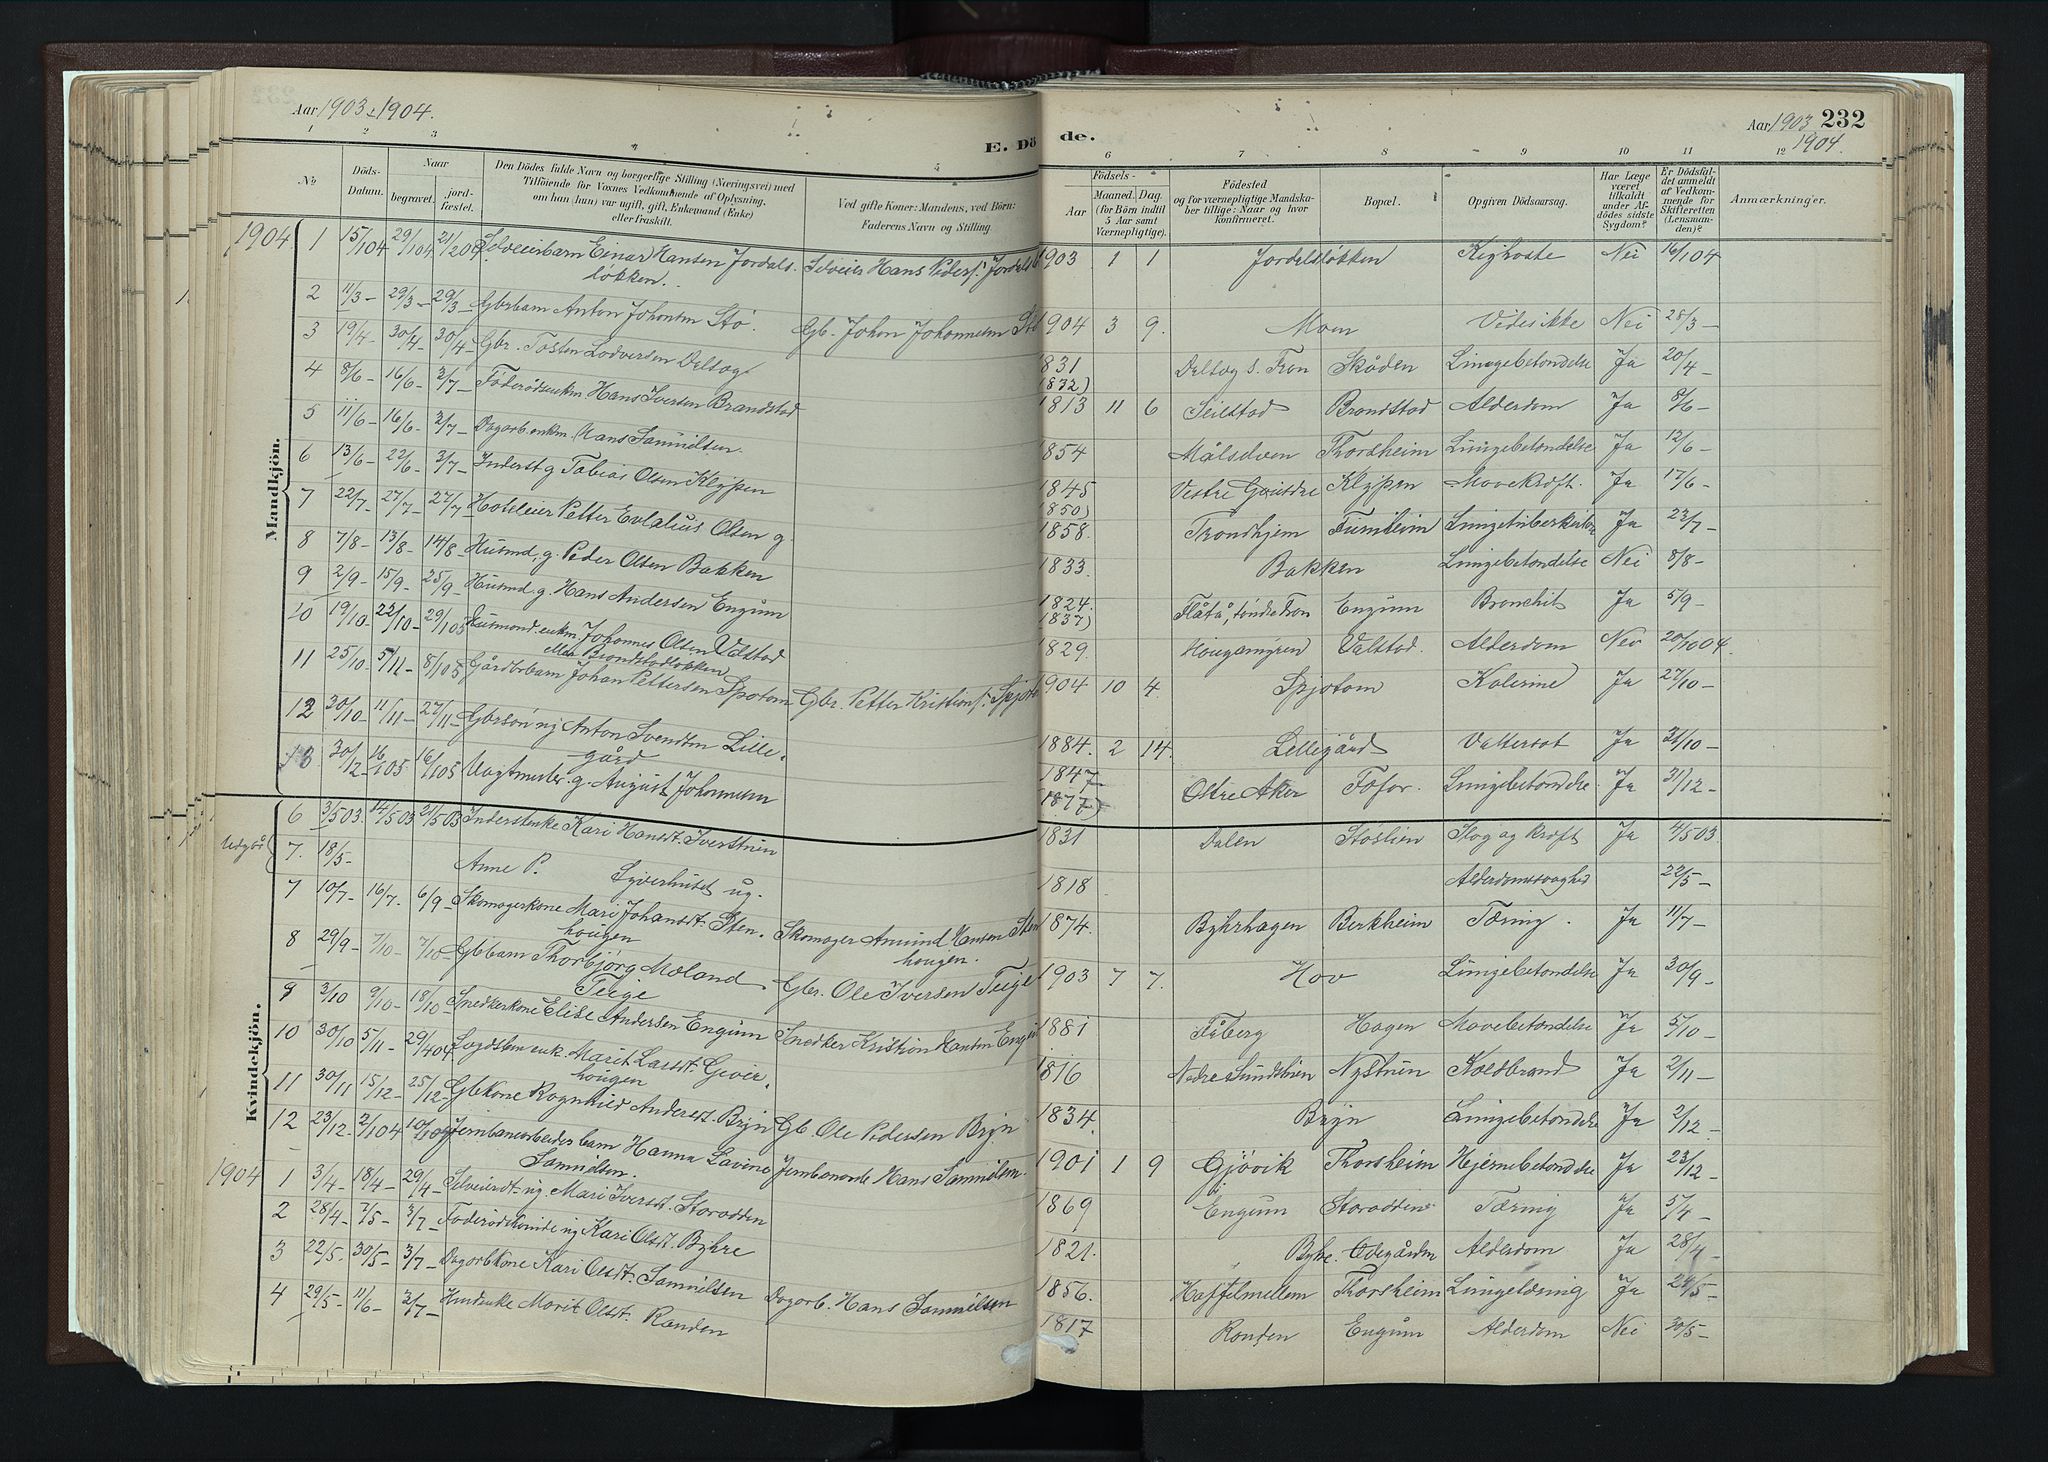 Aar 1903 & 1904.
E. Dö de.
Aar 1903 232
1904.
1 2 3 4 5 6 7 8 9 10 11 12
№
Döds-Datum.
Naar
begravet.
jord-fæstet.
Den Dödes fulde Navn og borgerlige Stilling (Næringsvei) med
Tilföiende for Voxnes Vedkommende af Oplysning,
om han (hun) var ugift, gift, Enkemand (Enke)
eller fraskilt.
Ved gifte Koner: Mandens, ved Börn:
Faderens Navn og Stilling.
Födsels-
Aar
Maaned. Dag.
(for Börn indtil
5 Aar samt
Værnepligtige).
Födested
og for værnepligtige Mandska-
ber tillige: Naar og hvor
konfirmeret.
Bopæl.
Opgiven Dödsaarsag.
Har Læge
været
tilkaldt
under Af-
dödes sidste
Sygdom?
Er Dödsfal-
det anmeldt
af Vedkom-
mende for
Skifteretten
(Lensman-
den)?
Anmærkninger.
Mandkjön.
1904. 1 15/1 04 29/1 04 21/2 04 Selveierbarn Einar Hansen Jordals- Selveier Hans Peders. 1903 1 1 Jordalsløkken Kighoste Nei 16/1 04
løkken.
2 11/3 - 29/3 - 29/3 - Gbrbarn Anton Johansen Stø. Gb. Johan Johannesen 1904 3 9. Moen Vides ikke Nei 25/3 -
3 19/4 - 30/4 - 30/4 - Gbr. Tosten Lodversen Delsog 1831 (1832) Delsog s. Fron Skåden Lungebetændelse Ja 20/4 -
4 8/6 - 16/6 - 3/7 - Føderådsenkm. Hans Iversen Brandstad 1813 11 6 Seielstad Brandstad Alderdom Ja 8/6 -
5 11/6 - 16/6 - 3/7 - Dagarb. enkm. Hans Samuelsen. 1854 Målselven Thordheim Lungebetændelse Ja 12/6 -
6 13/6 - 22/6 - 3/7 - Inderst g. Tobias Olsen Klypen 1845 Vestre Gausdal Klypen Mavekræft. Ja 17/6 -
7 22/7 - 27/7 - 27/7 - Hoteleier Petter Eulalius Olsen g. (1850) 1858. Trondhjem Furuheim Lungetuberkulose Ja 23/7 -
8 7/8 - 13/8 - 14/8 - Husmd. g. Peder Olsen Bakken 1833. Bakken Lungebetændelse Nei 8/8 -
9 2/9 - 15/9 - 25/9 - Husmd. g. Hans Andersen Engum 1824. (1837) Flåtå, søndre Fron Engum Bronchit Ja 5/9 -
10 19/10 - 22/10 - 29/1 05 Husmand enkm. Johannes Olsen Valstad 1829. Hougamyren Valstad. Alderdom Nei 20/10 04.
eller Brandstadløkken
11 25/10 - 5/11 - 8/1 05 Gårdbrbarn Johan Pettersen Spjotom Gbr. Petter Kristians. 1904 10 4. Spjotom Kolerine Ja 27/10 -
12 30/10 - 11/11 - 27/11 - Gbrsøn ug. Anton Svendsen Lille- 1884. 2 14. Lillegård Vattersot Ja 31/10 -
gård
13 30/12 - 16/1 05 16/1 05 Vagtmester g. August Johannesen 1847 (1877) Østre Aker Fåfar. Lungebetændelse. Ja 31/12 -
Kvindekjön.
6 3/5 03. 14/5 03 21/5 03 Inderstenke Kari Hansdt. Iverstuen 1831 Dalen Støslien Slag og kræft Ja 4/5 03.
Udgår 7. 18/5 - Anne P. Syverhuset ug. 1818 Alderdomssvaghed 22/5 -
7 10/7 - 16/7. 6/9 - Skomagerkone Mari Johansdt. Sten- Skomager Amund Hansen 1874. Byhrhagen Berkheim Tæring. Ja 11/7 -
hougen hougen.
8 29/9 - 7/10 - 7/10 - Gbbarn Thorbjørg Moland Gbr. Ole Iversen Teige 1903 7 7. Hov Lungebetændelse Ja 30/9 -
Teige
9 3/10 9/10 - 18/10 - Snedkerkone Elise Andersen Engum Snedker Kristian Hansen 1881 Fåberg Hagen Mavebetændelse Ja 5/10 -
10 30/10 5/11 - 29/4 04 Marit Larsdt. Gever- 1816 Nedre Sundslien Nystuen Koldbrand Ja 2/11 -
hougen
11 30/11 15/12 - 25/12 - Gbkone Ragnhild Andersdt. Bryn Gb. Ole Pedersen Bryn 1834. Bryn Lungebetændelse Ja 2/12 -
12 23/12. 2/1 04 10/1 04 Jernbanearbeiderbarn Hanna Lavine Jernbanearb. Hans Samuelsen. 1901 1 9 Gjøvik Thorsheim Hjernebetændelse Ja 23/12 -
Samuelsen.
1904 1 3/4 - 18/4 - 29/4 - Selveierdt. ug. Mari Iversdt. Storødden 1869 Engum Storødden Tæring Ja 5/4 -
2 28/4 - 7/5 - 3/7 - Føderådskvinde ug. Kari Olsdt. Byhre 1821. Byhre. Ødegården Alderdom Ja 28/4 -
3 22/5 - 30/5 - 3/7 - Dagarbkone Kari Olsdt. Samuelsen Dagarb. Hans Samuelsen 1856. Haffelmellem Thorsheim Lungetæring Ja 24/5 -
4 29/5 - 11/6 - 3/7 - Marit Olsdt. Randen 1817 Randen Engum Alderdom Nei 30/5 -